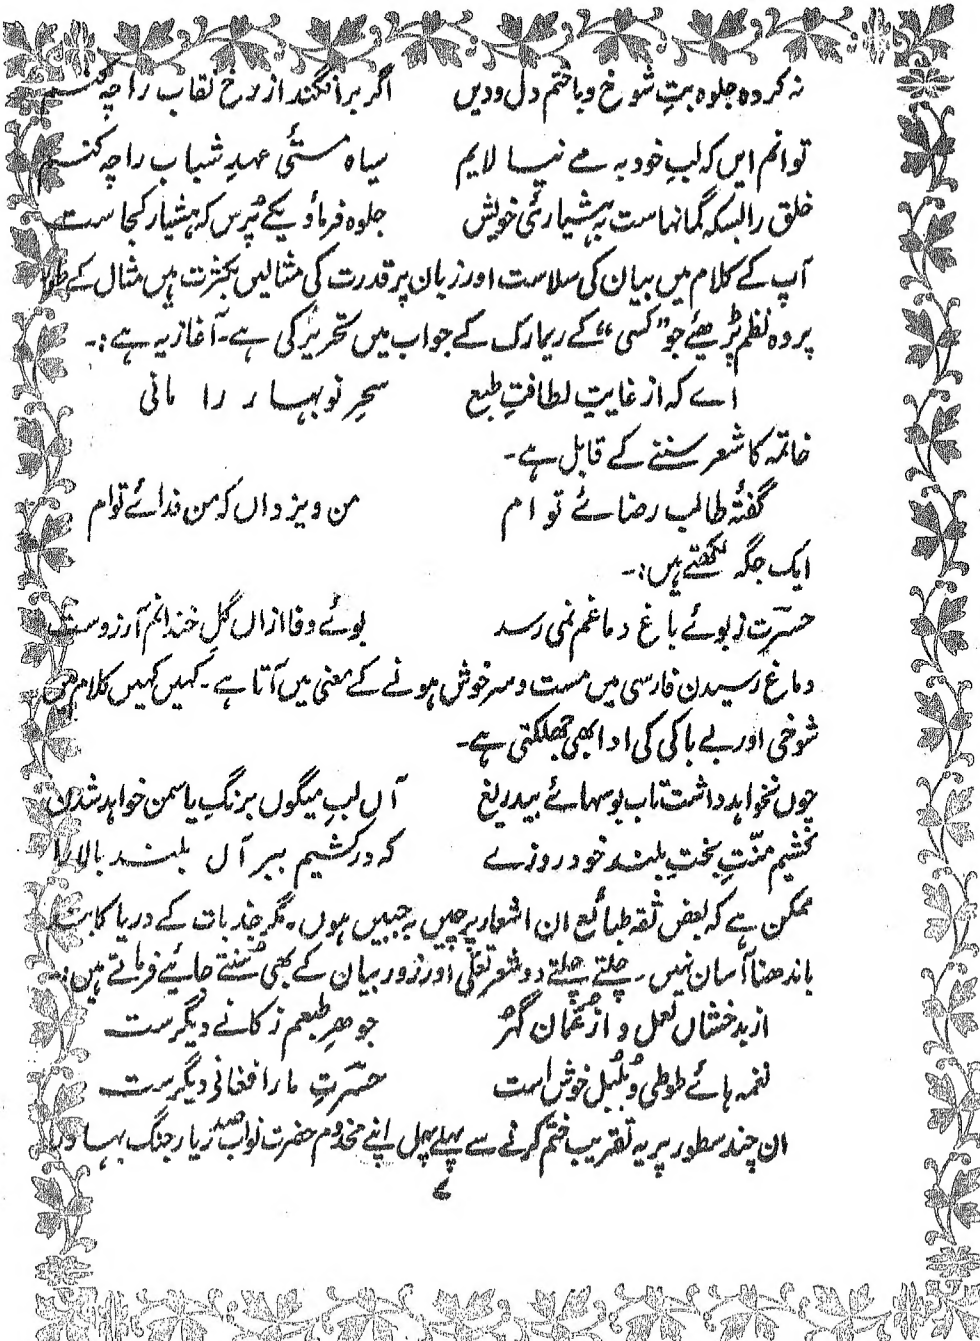 نہ کردہ جلوہ بتِ شوخ و باختم دل و دیں اگر برافگند از رخ نقاب را چہ کنم
توانم ایں کہ لبِ خود بہ مے نیالایم سیاہ مستیٔ عہدِ شباب را چہ کنم
خلق را بسکہ گمانہاست بہ ہشیاریٔ خویش جلوہ فرما و یکے پُرس کہ ہشیار کجاست
آپ کے کلام میں بیان کی سلاست اور زبان پر قدرت کی مثالیں بکثرت ہیں مثال کے طور
پر وہ نظم پڑھیئے جو ”کسی“ کے ریمارک کے جواب میں تحریر کی ہے۔ آغاز یہ ہے:۔
اے کہ از غایتِ لطافتِ طبع سحرِ نوبہار را مانی
خاتمہ کا شعر سننے کے قابل ہے۔
گفتۂ طالب رضائے تو ام من و یزداں کہ من فدائے توام
ایک جگہ لکھتے ہیں:۔
حسرت ز بوئے باغ دماغم نمی رسد بوئے وفا ازاں گلِ خندانم آرزوست
دماغ رسیدن فارسی میں مست و سرخوش ہونے کے معنی میں آتا ہے۔ کہیں کہیں کلام میں
شوخی اور بے باکی کی ادا بھی جھلکتی ہے۔
چوں نخواہد داشت تاب بوسہائے بیدریغ آں لبِ میگوں برنگِ یاسمن خواہد شدن
کشیم منّتِ بختِ بلند خود روزے کہ درکشیم ببر آں بلند بالا را
ممکن ہے کہ بعض ثقہ طبائع ان اشعار پر چیں بہ جبیں ہوں۔ مگر جذبات کے دریا کا بند
باندھنا آسان نہیں۔ چلتے چلتے دو شعر تعلّی اور زور بیان کے بھی سُنتے جائیے فرماتے ہیں:۔
از بدخشاں لعل و از عُمان گہر جوہرِ طبعم ز کانے دیگرست
نغمہ ہائے طوطی و بُلبل خوش است حسرتِ ما را فغانی دیگرست
ان چند سطور پر یہ تقریب ختم کرنے سے پہلے پہل اپنے مخدوم حضرت نواب صدر یار جنگ بہادر
۷